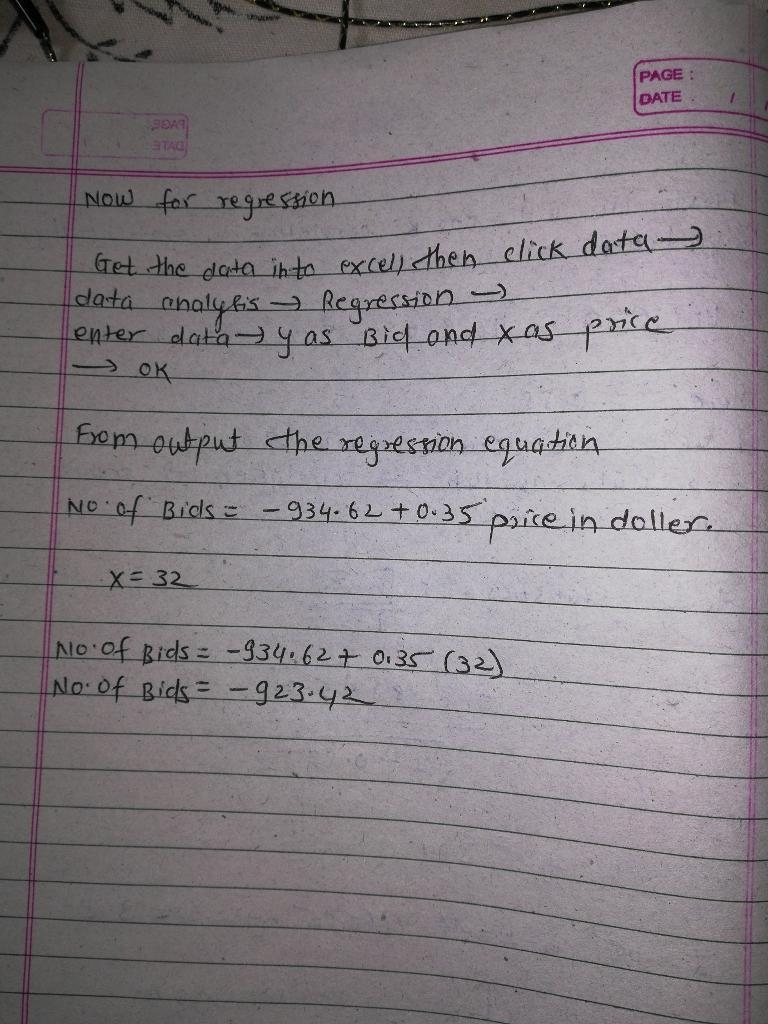 PAGE :
DATE : / /
PAGE
DATE
Now for regression
Get the data into excell, then click data →
data analysis → Regression →
enter data → y as Bid and x as price
→ OK
From output the regression equation
No. of Bids = -934.62 + 0.35 price in doller.
x = 32
No. of Bids = -934.62 + 0.35 (32)
No. of Bids = -923.42